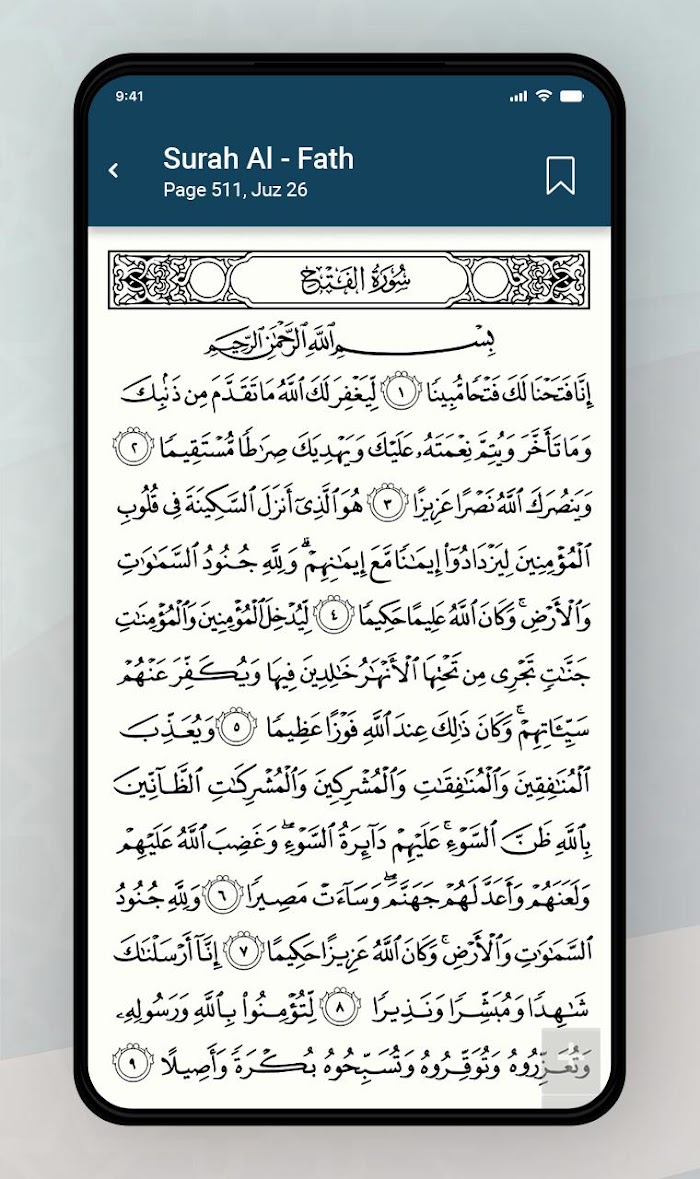 9:41
Surah Al - Fath
Page 511, Juz 26
سُورَةُ الفَتْحِ
بِسْمِ ٱللَّهِ ٱلرَّحْمَٰنِ ٱلرَّحِيمِ
إِنَّا فَتَحْنَا لَكَ فَتْحًا مُّبِينًا ١ لِّيَغْفِرَ لَكَ ٱللَّهُ مَا تَقَدَّمَ مِن ذَنۢبِكَ
وَمَا تَأَخَّرَ وَيُتِمَّ نِعْمَتَهُۥ عَلَيْكَ وَيَهْدِيَكَ صِرَٰطًا مُّسْتَقِيمًا ٢
وَيَنصُرَكَ ٱللَّهُ نَصْرًا عَزِيزًا ٣ هُوَ ٱلَّذِىٓ أَنزَلَ ٱلسَّكِينَةَ فِى قُلُوبِ
ٱلْمُؤْمِنِينَ لِيَزْدَادُوٓا۟ إِيمَٰنًا مَّعَ إِيمَٰنِهِمْ ۗ وَلِلَّهِ جُنُودُ ٱلسَّمَٰوَٰتِ
وَٱلْأَرْضِ ۚ وَكَانَ ٱللَّهُ عَلِيمًا حَكِيمًا ٤ لِّيُدْخِلَ ٱلْمُؤْمِنِينَ وَٱلْمُؤْمِنَٰتِ
جَنَّٰتٍ تَجْرِى مِن تَحْتِهَا ٱلْأَنْهَٰرُ خَٰلِدِينَ فِيهَا وَيُكَفِّرَ عَنْهُمْ
سَيِّـَٔاتِهِمْ ۚ وَكَانَ ذَٰلِكَ عِندَ ٱللَّهِ فَوْزًا عَظِيمًا ٥ وَيُعَذِّبَ
ٱلْمُنَٰفِقِينَ وَٱلْمُنَٰفِقَٰتِ وَٱلْمُشْرِكِينَ وَٱلْمُشْرِكَٰتِ ٱلظَّآنِّينَ
بِٱللَّهِ ظَنَّ ٱلسَّوْءِ ۚ عَلَيْهِمْ دَآئِرَةُ ٱلسَّوْءِ ۖ وَغَضِبَ ٱللَّهُ عَلَيْهِمْ
وَلَعَنَهُمْ وَأَعَدَّ لَهُمْ جَهَنَّمَ ۖ وَسَآءَتْ مَصِيرًا ٦ وَلِلَّهِ جُنُودُ
ٱلسَّمَٰوَٰتِ وَٱلْأَرْضِ ۚ وَكَانَ ٱللَّهُ عَزِيزًا حَكِيمًا ٧ إِنَّآ أَرْسَلْنَٰكَ
شَٰهِدًا وَمُبَشِّرًا وَنَذِيرًا ٨ لِّتُؤْمِنُوا۟ بِٱللَّهِ وَرَسُولِهِۦ
وَتُعَزِّرُوهُ وَتُوَقِّرُوهُ وَتُسَبِّحُوهُ بُكْرَةً وَأَصِيلًا ٩